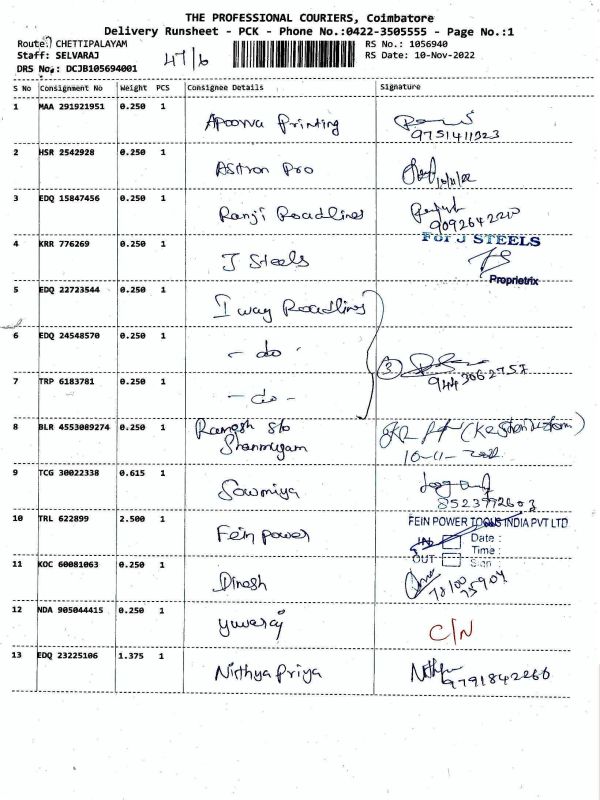 THE PROFESSIONAL COURIERS, Coimbatore
Delivery Runsheet - PCK - Phone No.:0422-3505555 - Page No.:1
Route: CHETTIPALAYAM
RS No.: 1056940
Staff: SELVARAJ
47/6
RS Date: 10-Nov-2022
DRS No.: DCJB105694001
S No Consignment No Weight PCS Consignee Details Signature
1 MAA 291921951 0.250 1 Apoorva Printing
9751411323
2 HSR 2542928 0.250 1 Astron Pro 10/11/22
3 EDQ 15847456 0.250 1 Ranji Roadlines
9092642220
4 KRR 776269 0.250 1 J Steels For J STEELS
Proprietrix
5 EDQ 22723544 0.250 1 I way Roadlines
6 EDQ 24548570 0.250 1 - do - 3
9443062757
7 TRP 6183781 0.250 1 - do -
8 BLR 4553089274 0.250 1 Ramesh S/o
Shanmugam
10-11-2022
9 TCG 30022338 0.615 1 Sowmiya
8523992603
10 TRL 622899 2.500 1 Fein power FEIN POWER TOOLS INDIA PVT LTD
IN Date :
Time :
OUT Sign :
11 KOC 60081063 0.250 1 Dinesh
78100
75904
12 NDA 905044415 0.250 1 Yuvaraj C/N
13 EDQ 23225106 1.375 1 Nithya Priya
9791842266